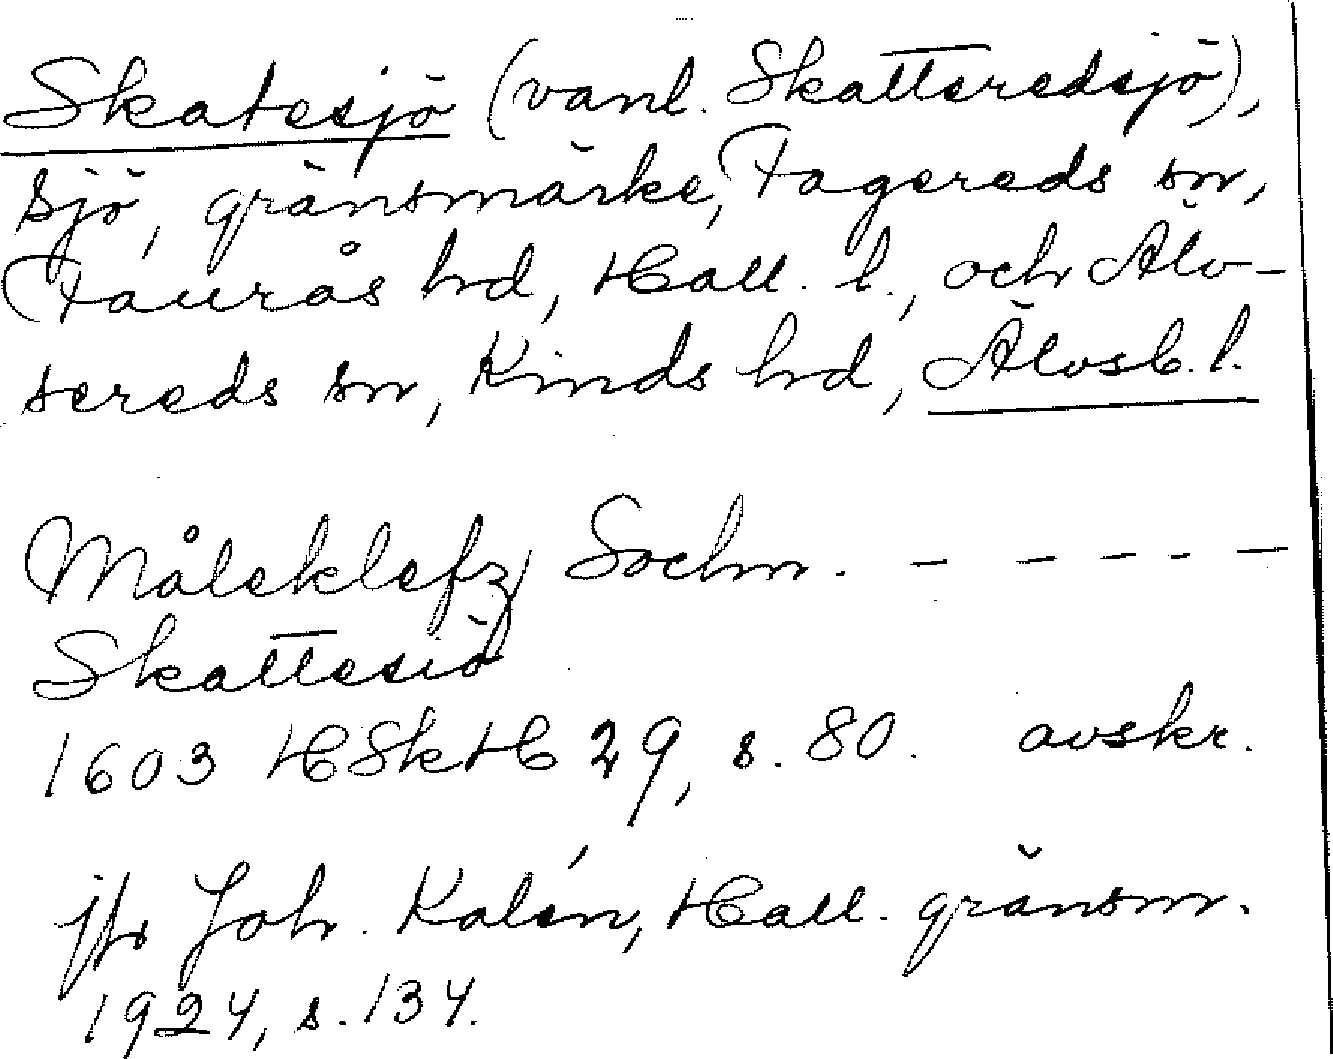 Skatesjö (vanl. Skattsredsjö),
sjö, gränsmärke, Fagereds sn,
Faurås hd, Hall. l., och Älv-
sereds sn, Kinds hd, Älvsb. l.
Måleklefz Sochn. - - - - -
Skattesiö
1603 HSkH 29, s. 80. avskr.
jfr Joh. Kalén, Hall. gränsm.
1924, s. 134.